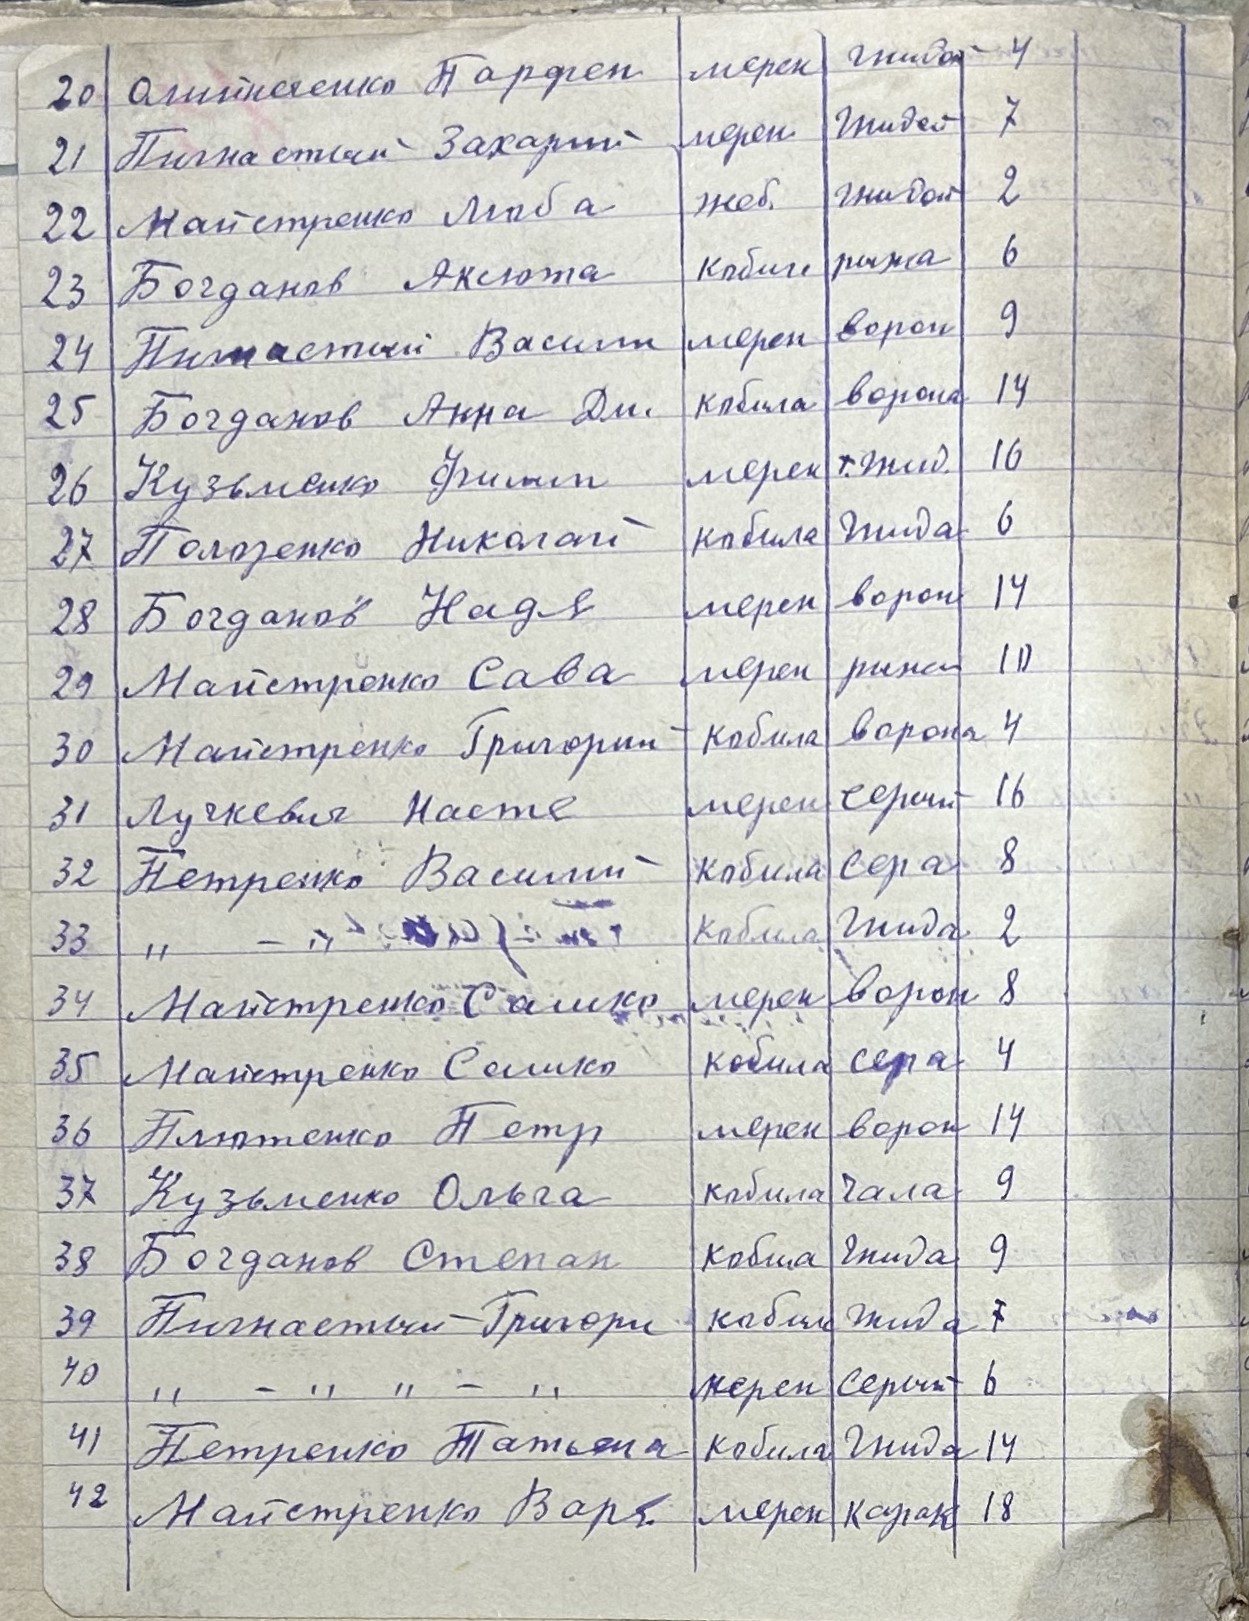 20 Олийнеченко Парфен мерен гнидой 4
21 Пигнастый Захарий мерен гнидой 7
22 Майстренко Люба жеб. гнидой 2
23 Богданов Аксюта кобили рижа 6
24 Пигнастый Василий мерен ворон 9
25 Богданов Анна Дм. кобила ворона 14
26 Кузьменко Филип мерен т.гнид 16
27 Полозенко Николай кобила гнида 6
28 Богданов Надя мерен ворон 14
29 Майстренко Сава мерен рижи 10
30 Майстренко Григорий кобила ворона 4
31 Лучкевич Настя мерен серый 16
32 Петренко Василий кобила сера 8
33 " - " кобила гнида 2
34 Майстренко Сашко мерен ворон 8
35 Майстренко Сашко кобила сера 4
36 Плютенко Петр мерен ворон 14
37 Кузьменко Ольга кобила чала 9
38 Богданов Степан кобила гнида 9
39 Пигнастый Григори кобили гнида 7
40 " - " " - " мерен серый 6
41 Петренко Татьяна кобила гнида 14
42 Майстренко Варя мерен карак 18